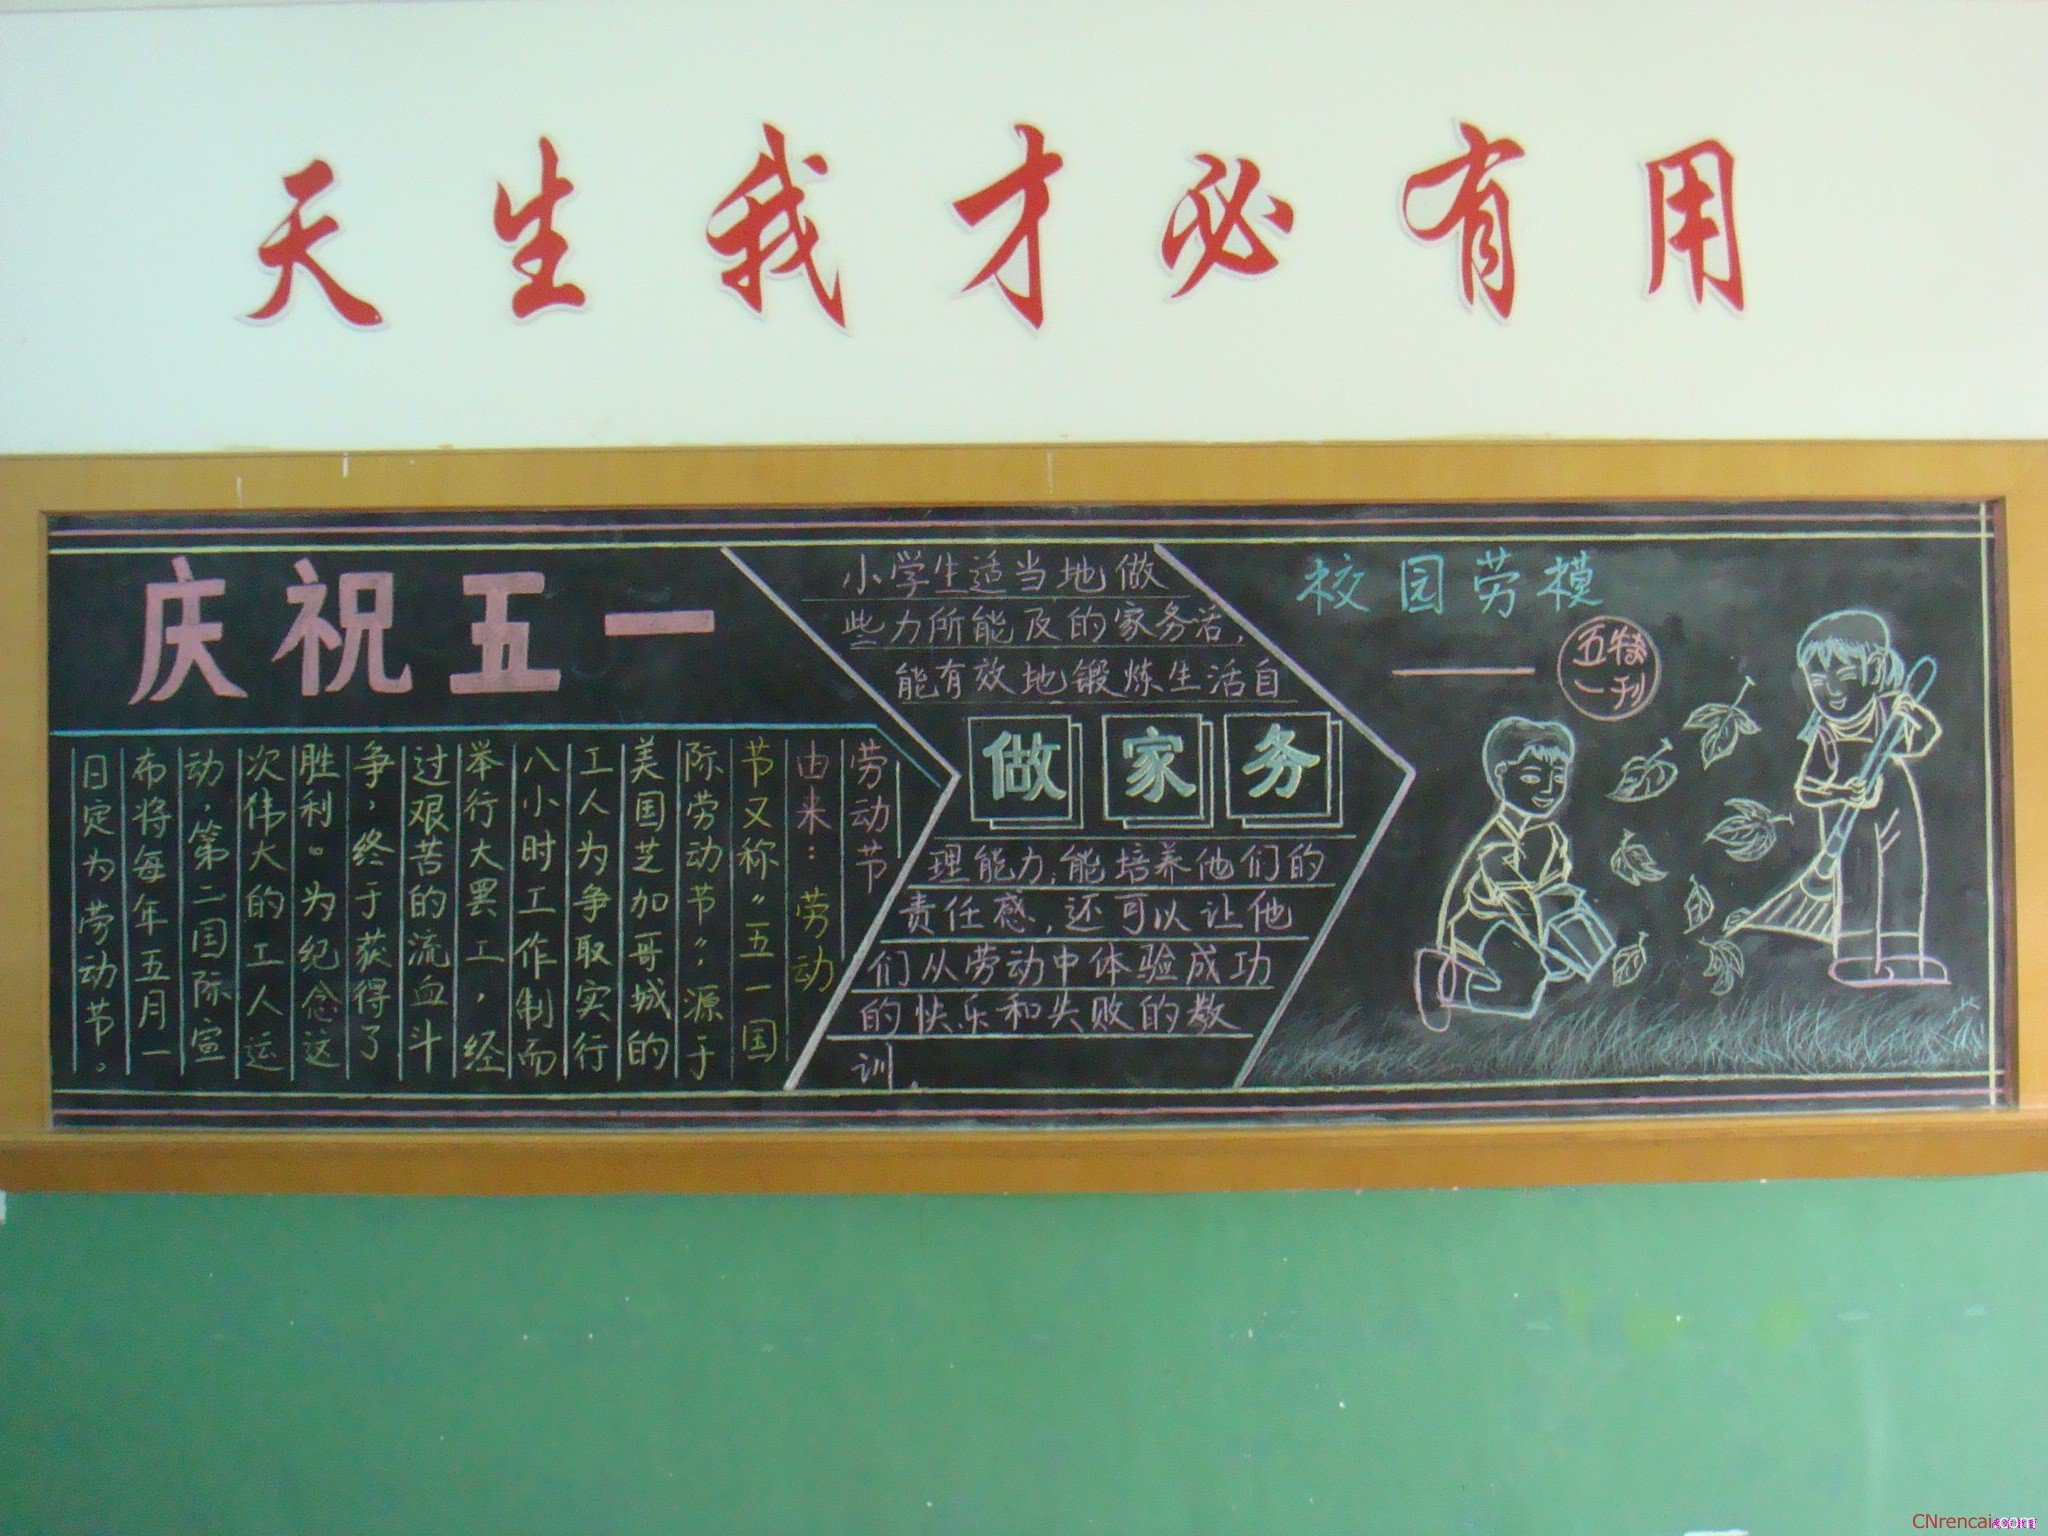 天生我才必有用
庆祝五一
劳动节
由来：劳动
节又称“五一国
际劳动节”源于
美国芝加哥城的
工人为争取实行
八小时工作制而
举行大罢工，经
过艰苦的流血斗
争，终于获得了
胜利。为纪念这
次伟大的工人运
动，第二国际宣
布将每年五月一
日定为劳动节。
小学生适当地做
些力所能及的家务活，
能有效地锻炼生活自
做家务
理能力；能培养他们的
责任感，还可以让他
们从劳动中体验成功
的快乐和失败的教
训。
校园劳模
——
五一
特刊
CNrencai.com